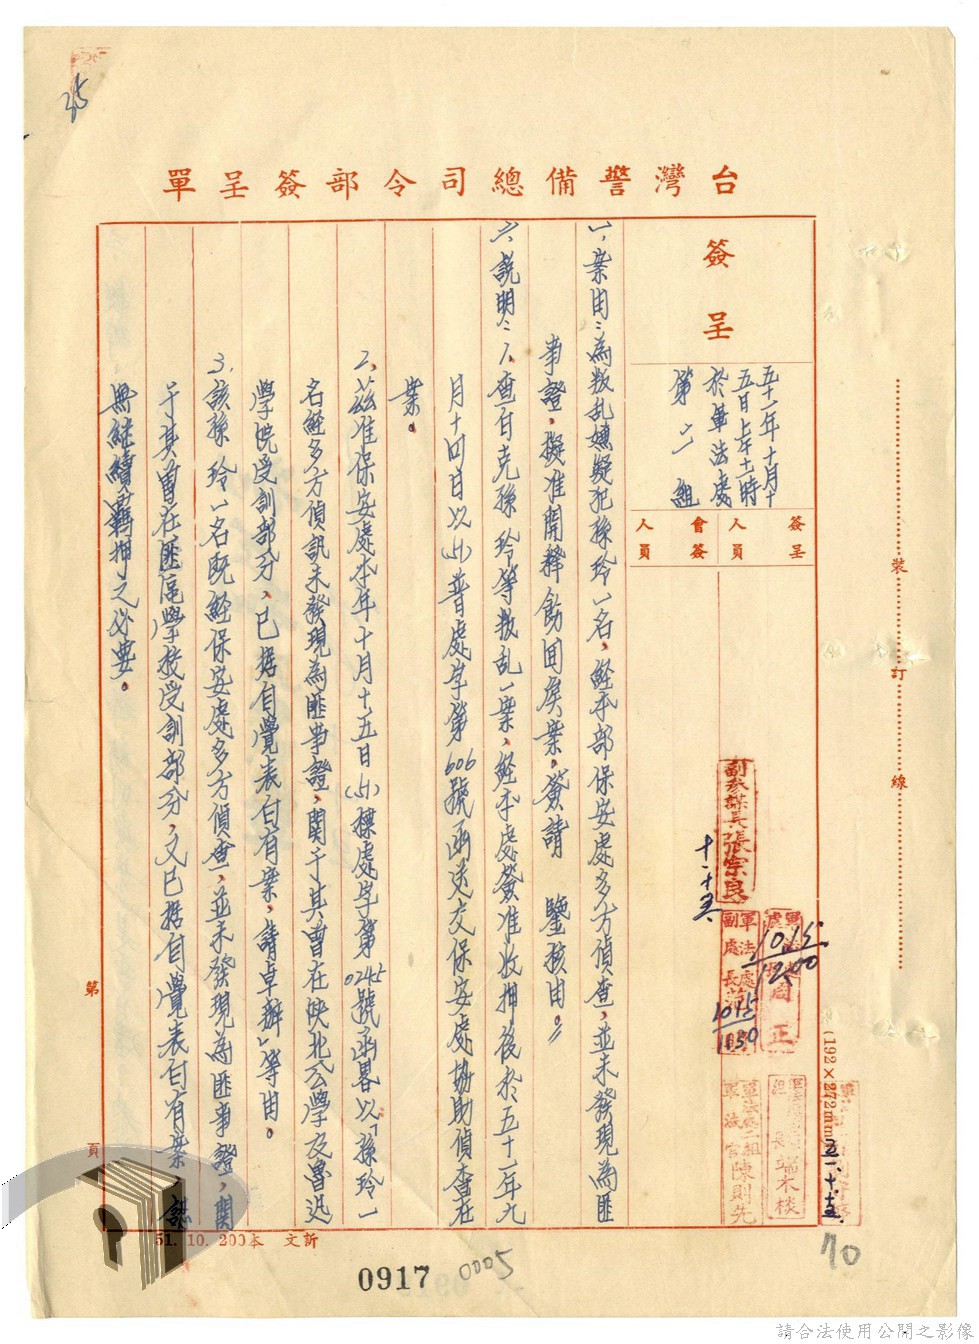 35
台灣警備總司令部簽呈單
簽呈
五十一年十月十
五日上午十一時
於軍法處
第二組
簽呈
人員
會簽
人員
副參謀長張宗良
十.十五.
軍法處
副處長
1015
1130
周正
1015
1200
軍法處二組
軍法官陳則先
端木棪
五一.十.十五.
一、案由：為叛乱嫌疑犯孫玲一名，經本部保安處多方偵查，並未發現為匪
事證，擬准開釋飭回戾案。簽請　鑒核由。
二、說明：1.查白克孫玲等叛乱一案，經本處簽准收押後於五十一年九
月十四日以(51)普處字第606號函送交保安處協助偵查在
案。
2.茲准保安處本年十月十五日(51)標處字第0245號函畧以「孫玲一
名經多方偵訊未發現為匪事證，関于其曾在陝北公學及魯迅
學院受訓部分，已据自覺表白有案，請卓辦」等由。
3.該孫玲一名既經保安處多方偵查，並未發現為匪事證，関
于其曾在匪區學校受訓部分，又已据自覺表白有案，認
無繼續羈押之必要。
裝
訂
線
(192×272mm)
第
頁
51. 10. 200本 文新
0917
0005
70
請合法使用公開之影像